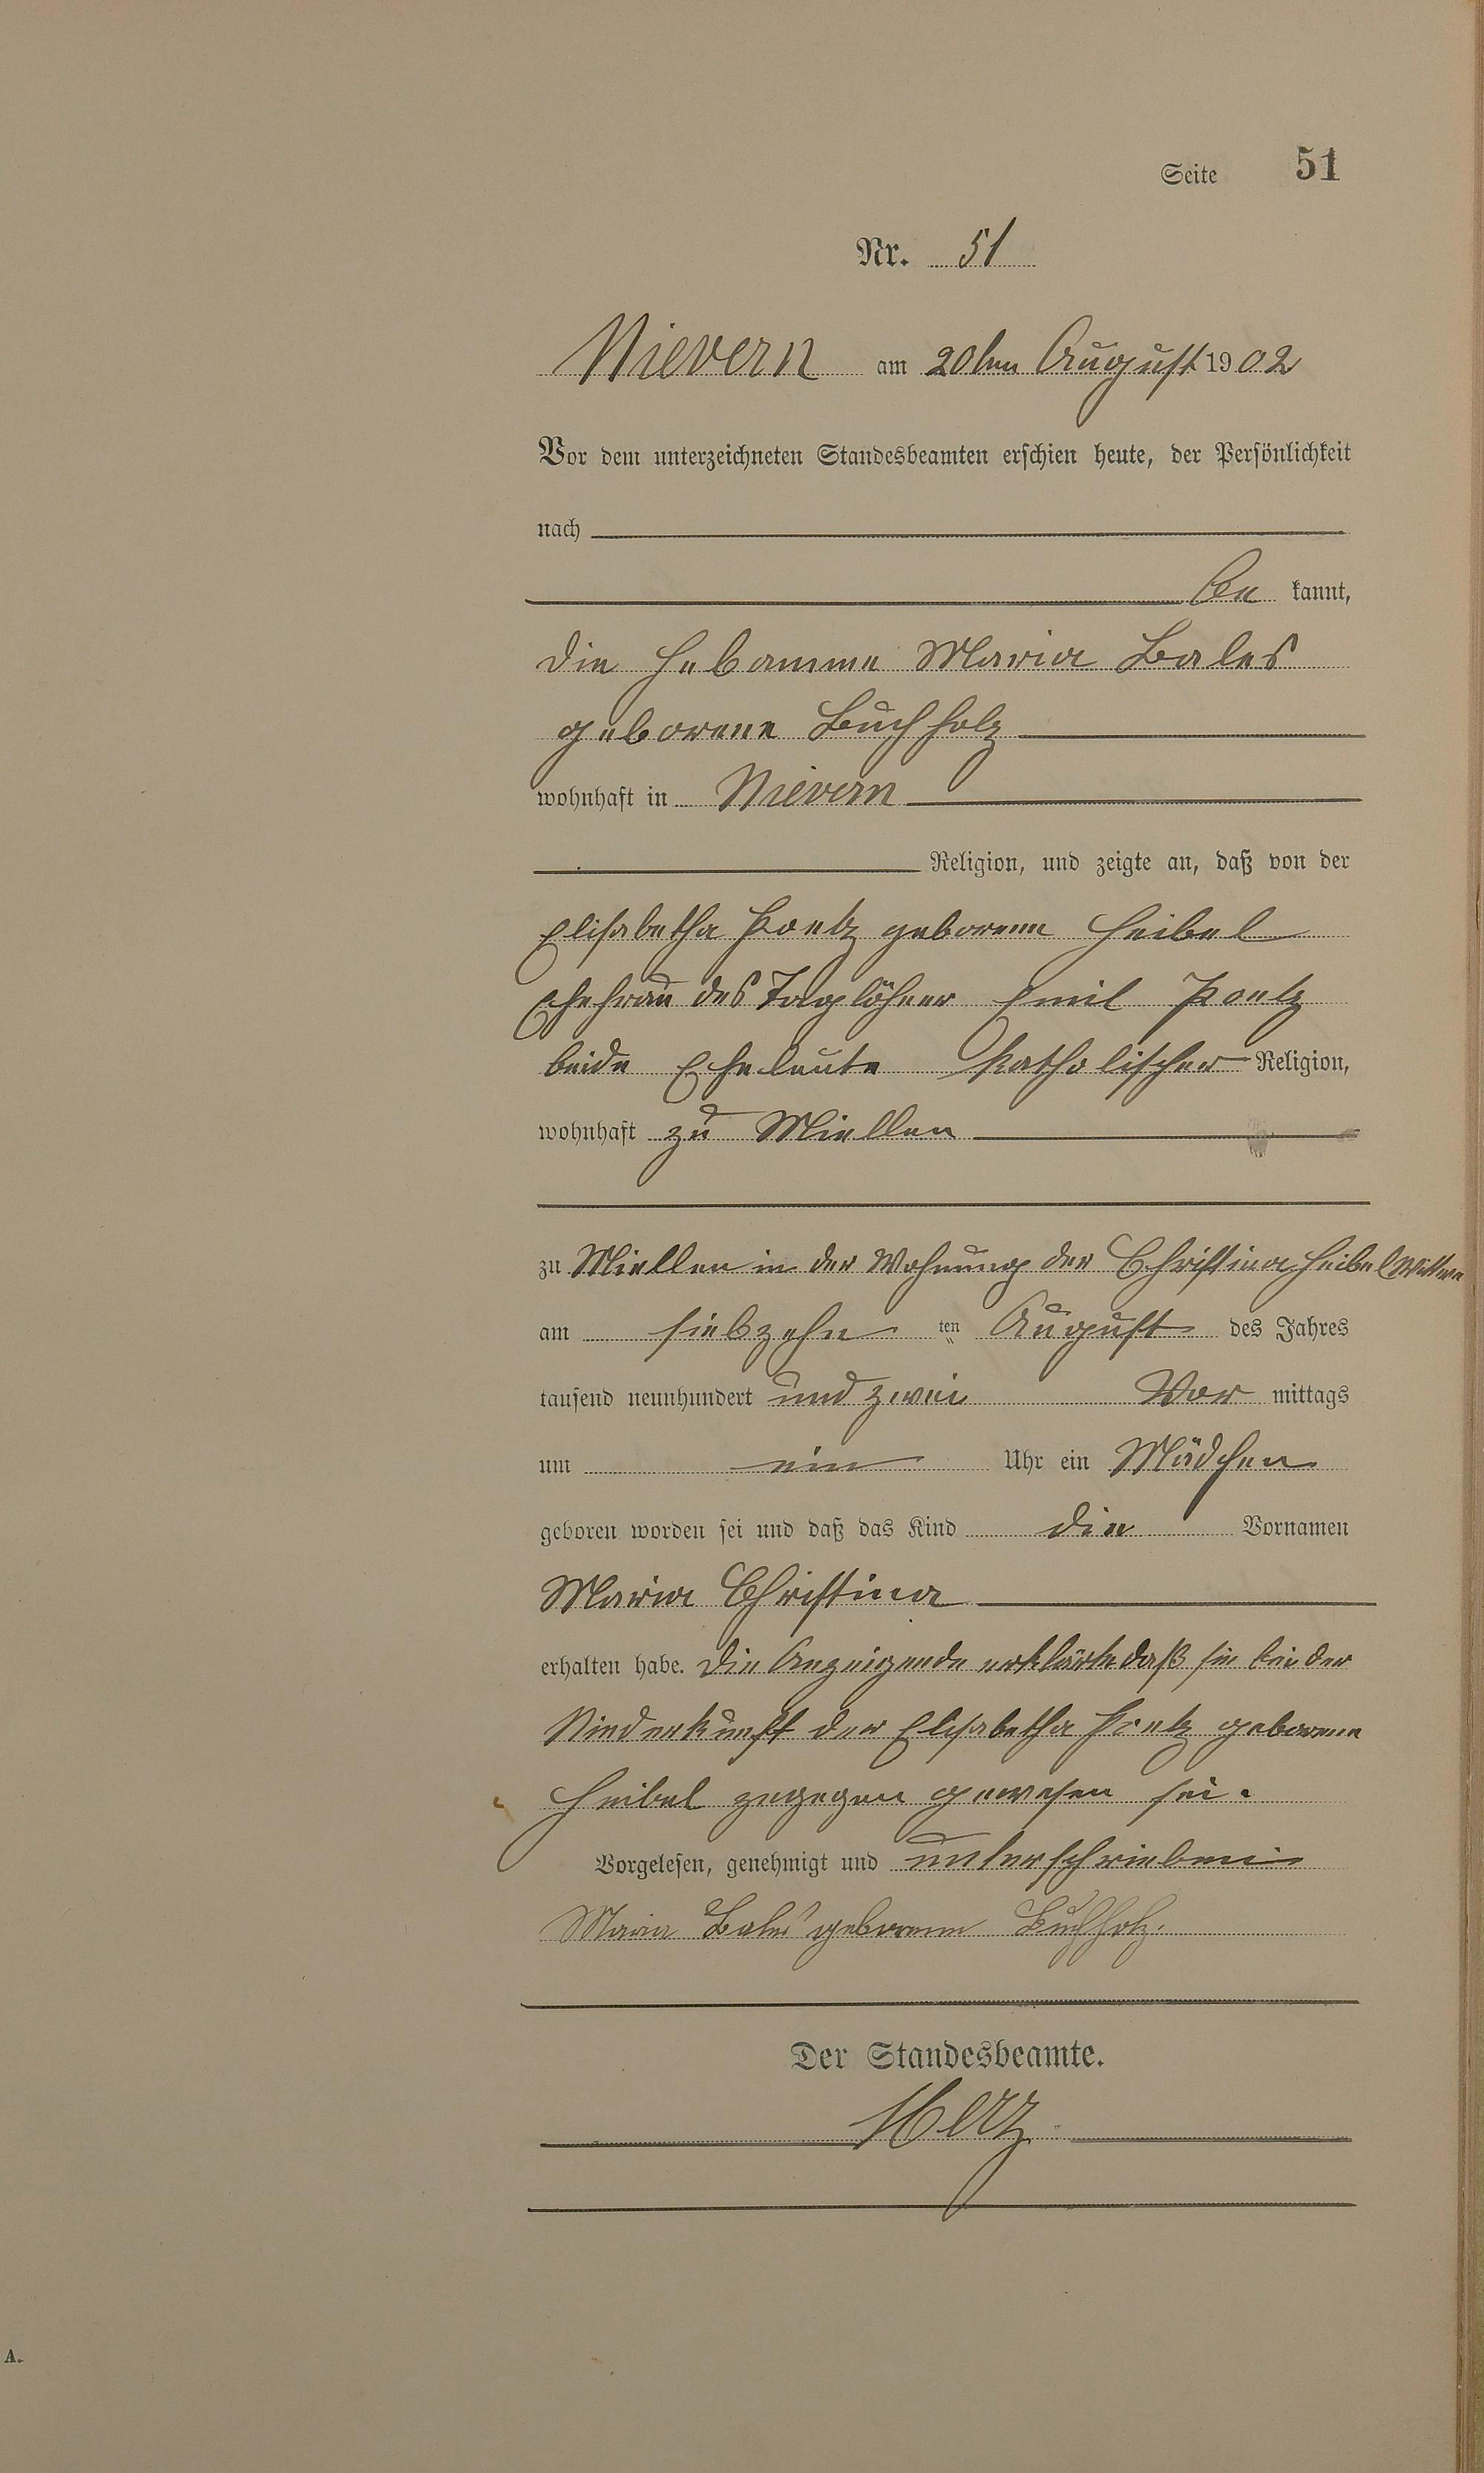 Seite 51
Nr. 51
Nievern am 20ten August 1902
Vor dem unterzeichneten Standesbeamten erschien heute, der Persönlichkeit
nach
be kannt,
die Hebamme Maria Bales
geborene Buchholz
wohnhaft in Nievern
Religion, und zeigte an, daß von der
Elisabetha geborene Heibel
Ehefrau des Taglöhner Emil
beide Eheleute katholischer Religion,
wohnhaft zu Miellen
zu Miellen in der Wohnung der Christina Heibel Wittwe
am siebzehn ten August des Jahres
tausend neunhundert und zwei Vor mittags
um ein Uhr ein Mädchen
geboren worden sei und daß das Kind die Vornamen
Maria Christina
erhalten habe. Die Anzeigende erklärte daß sie bei der
Niederkunft der Elisabetha geborene
Heibel zugegen gewesen sei.
Vorgelesen, genehmigt und unterschrieben
Maria Bales geborene Buchholz.
Der Standesbeamte.
A.